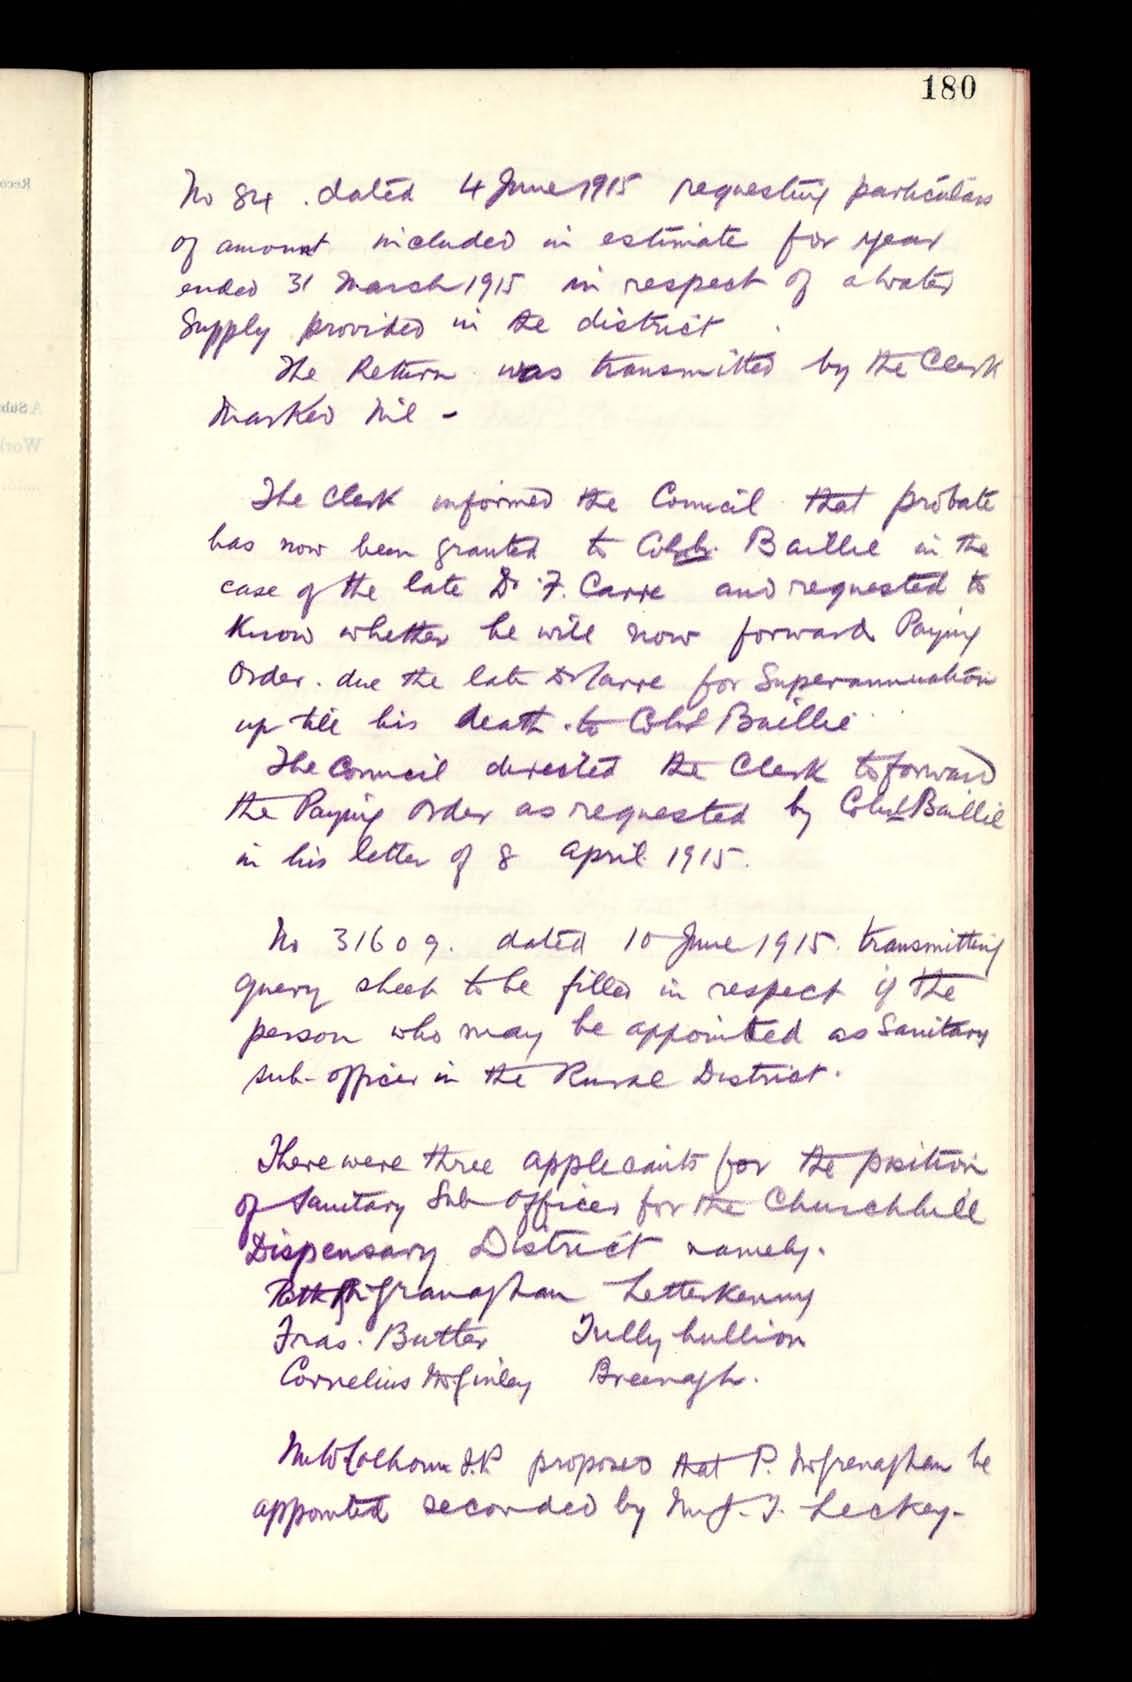 180
No 84 . dated 4 June 1915 requesting particulars
of amount included in estimate for year
ended 31 March 1915 in respect of a water
Supply provided in the district .
The Return was transmitted by the Clerk
Marked Nil -
The Clerk informed the Council that probate
has now been granted to Baillie in the
case of the late Dr. F. Carre and requested to
Know whether he will now forward Paying
Order . due the late Dr Carre for Superannuation
up till his death . to Colnl Baillie
The Council directed the Clerk to forward
the Paying Order as requested by Colnl Baillie
in his letter of 8 April 1915.
No 31609. dated 10 June 1915. transmitting
query sheet to be filled in respect of the
person who may be appointed as Sanitary
sub-officer in the Rural District .
There were three applicants for the position
of Sanitary Sub officer for the Churchhill
Dispensary District namely.
Letterkenny
Fras. Butler Tullyhullion
Cornelius McGinley Breenagh.
Mr W Colhoun J.P. proposed that P. McGrenaghan be
appointed seconded by Mr J. T. Leckey-
Reco
A Sub
Work